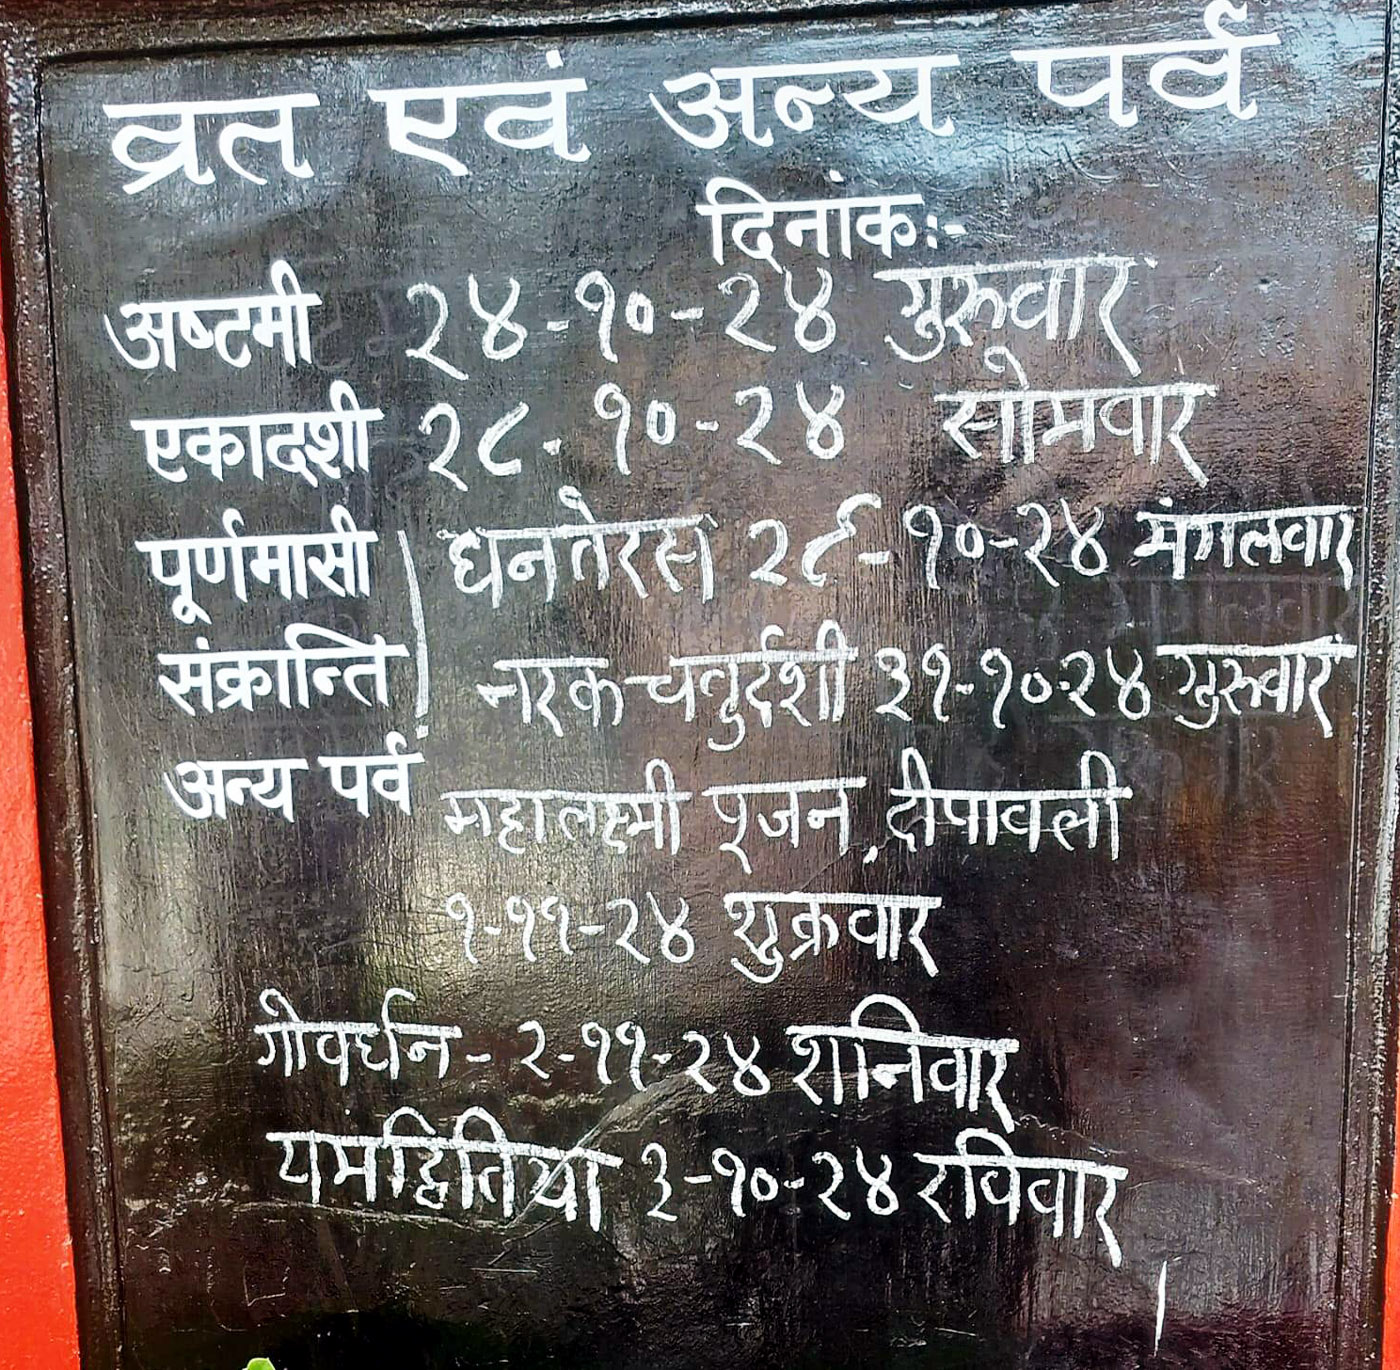 व्रत एवं अन्य पर्व
दिनांक:-
अष्टमी २४-१०-२४ गुरुवार
एकादशी २८-१०-२४ सोमवार
पूर्णमासी धनतेरस २९-१०-२४ मंगलवार
संक्रान्ति नरक चतुर्दशी ३१-१०-२४ गुरुवार
अन्य पर्व महालक्ष्मी पूजन, दीपावली
१-११-२४ शुक्रवार
गोवर्धन - २-११-२४ शनिवार
यमंद्वितिया ३-१०-२४ रविवार